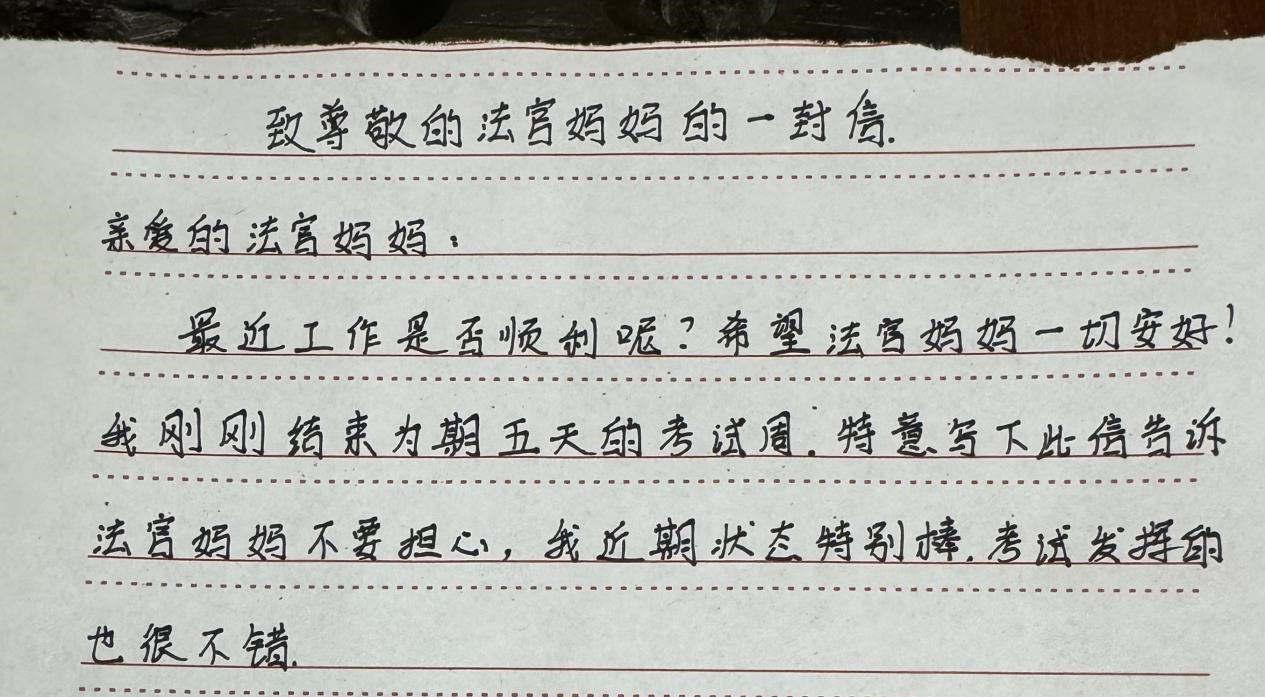 致尊敬的法官妈妈的一封信.
亲爱的法官妈妈：
最近工作是否顺利呢？希望法官妈妈一切安好！
我刚刚结束为期五天的考试周.特意写下此信告诉
法官妈妈不要担心，我近期状态特别棒.考试发挥的
也很不错.